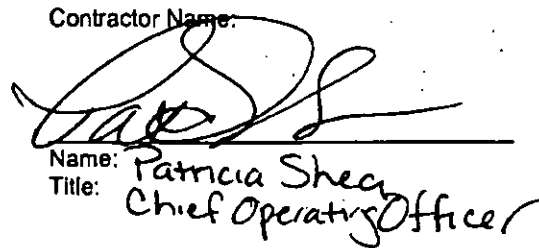 Contractor Name:
Name: Patricia Shea
Title: Chief Operating Officer